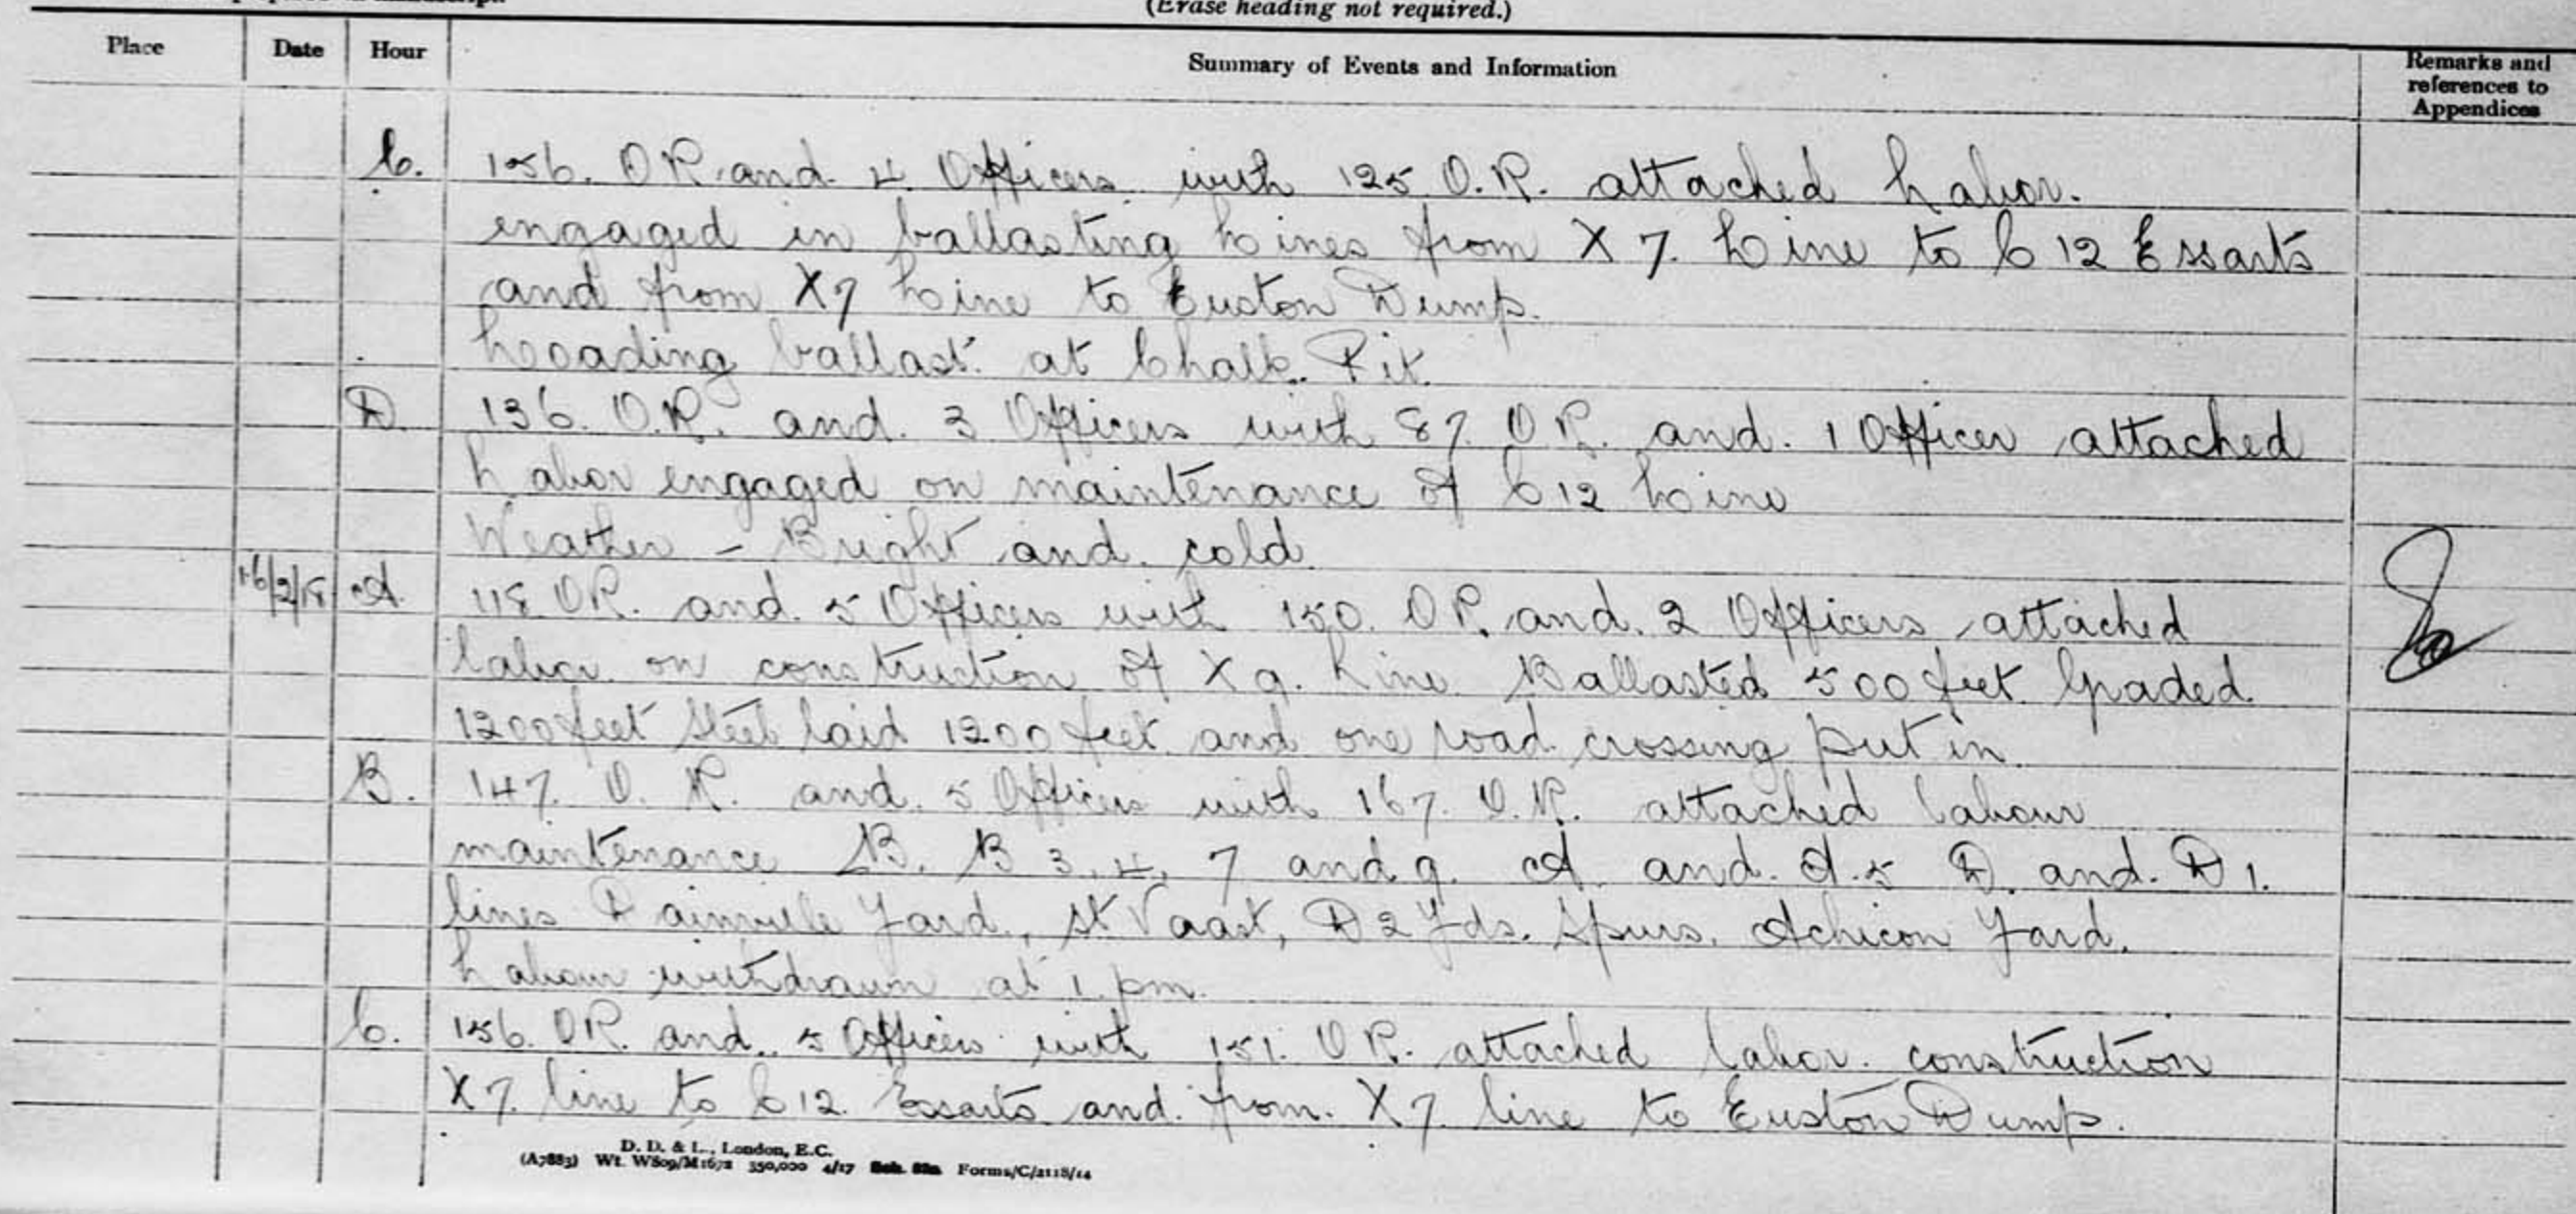 (Erase heading not required.)
Place Date Hour Summary of Events and Information Remarks and references to Appendices
C. 156. O.R. and 4 Officers with 125 O.R. attached Labor.
engaged in ballasting Lines from X 7. Line to C 12 Essarts
and from X7 Line to Euston Dump.
Looading ballast at Chalk Pit.
D. 136. O.R. and. 3 Officers with 87. O.R. and. 1 Officer attached
Labor engaged on maintenance of C 12 Line
Weather - Bright and cold.
16/2/18 A. 118 O.R. and. 5 Officers with 150. O.R. and. 2 Officers attached
labor on construction of X 9. Line Ballasted 500 feet. Graded
1200 feet Steel laid 1200 feet and one road crossing put in.
B. 147. O. R. and. 5 Officers with 167. O.R. attached labour
maintenance B. B 3, 4, 7 and 9. A and. A.5 D. and. D 1.
lines Dainville Yard, St Vaast, D2 Yds. Spurs. Achicon Yard.
Labour withdrawn at 1. pm.
C. 156. O.R. and. 5 Officers with 151. O.R. attached labor. construction
X 7. line to C 12. Essarts and from. X 7 line to Euston Dump.
D. D. & L., London, E.C.
(A7883) Wt. W809/M1672 350,000 4/17 Forms/C/2118/14